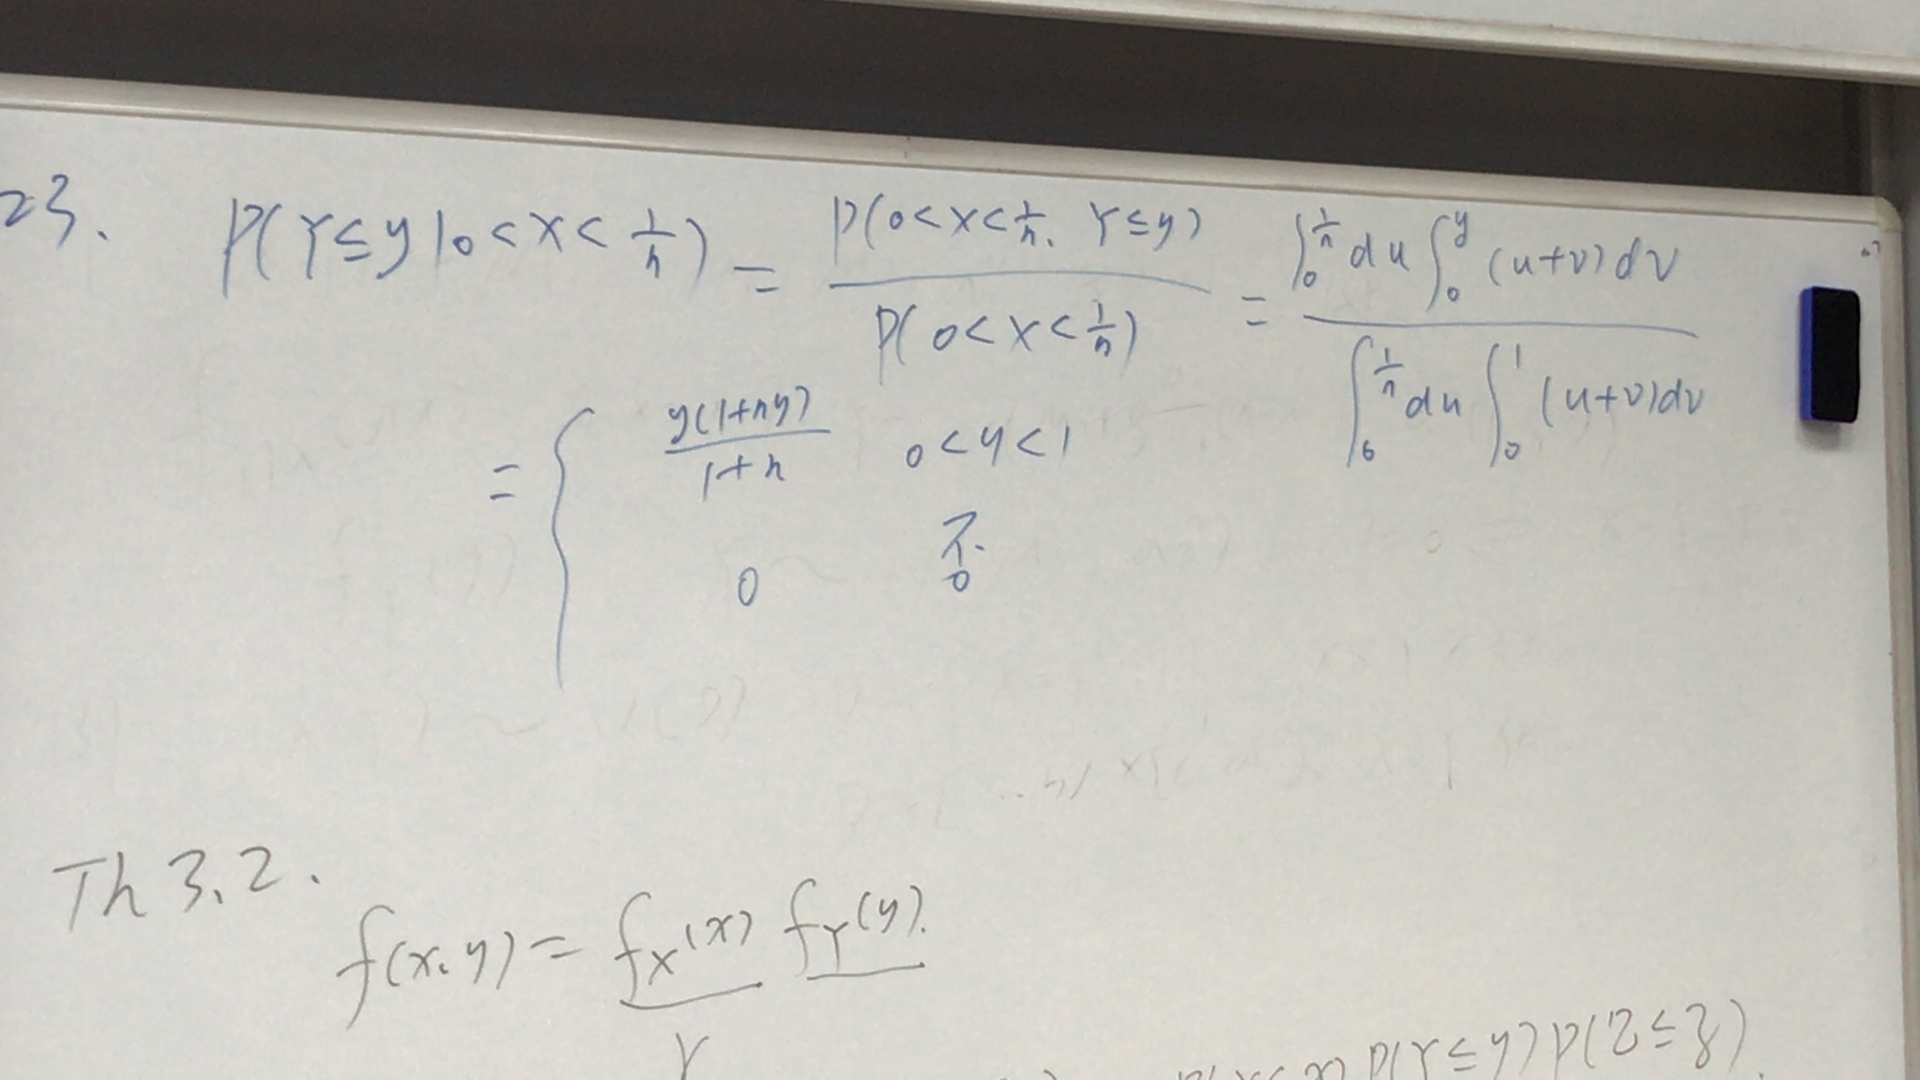 23. P(Y≤y|0<X<1/n) = P(0<X<1/n, Y≤y) / P(0<X<1/n) = ∫_0^{1/n} du ∫_0^y (u+v)dv / ∫_0^{1/n} du ∫_0^1 (u+v)dv
= { y(1+ny)/(1+n) 0<y<1
0
Th 3.2.
f(x,y) = f_X(x) f_Y(y).
P(Y≤y) P(Z≤z)